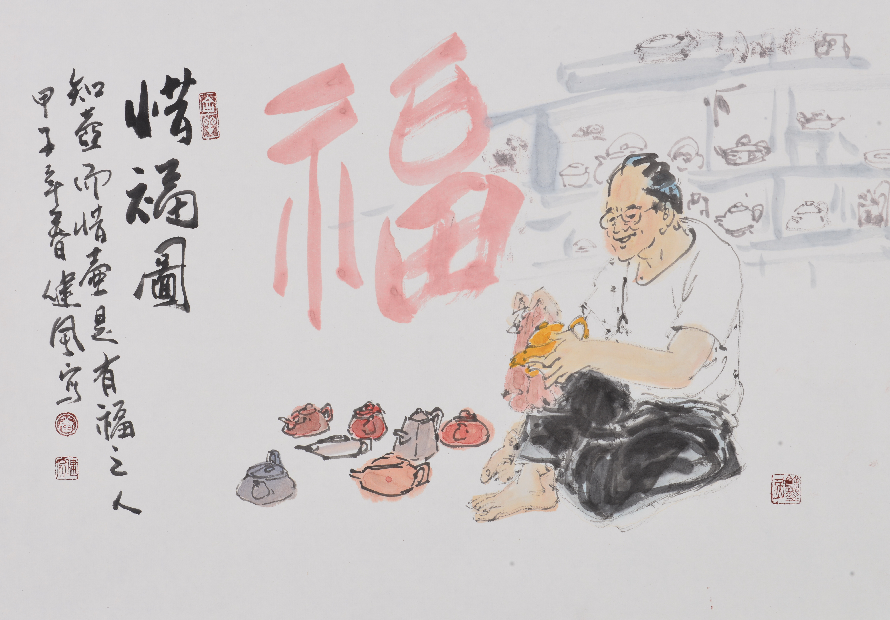 福
惜福圖
知壺而惜壺是有福之人
甲子年春健風寫